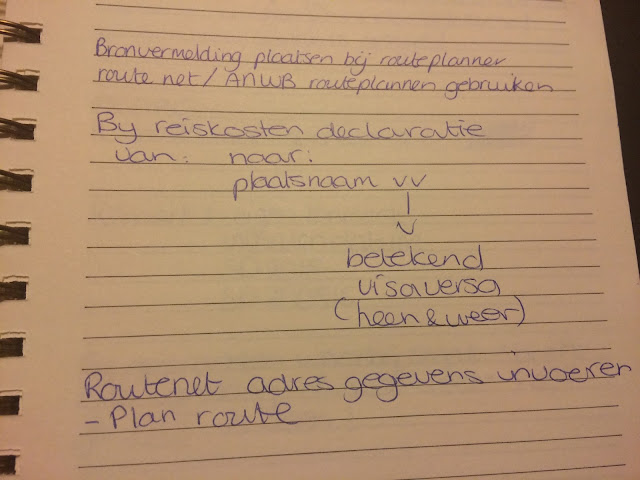 Bronvermelding plaatsen bij routeplanner
route net / ANWB routeplannen gebruiken
By reiskosten declaratie
van: naar:
plaatsnaam vv
betekend
visaversa
(heen & weer)
Routenet adres gegevens invoeren
- Plan route